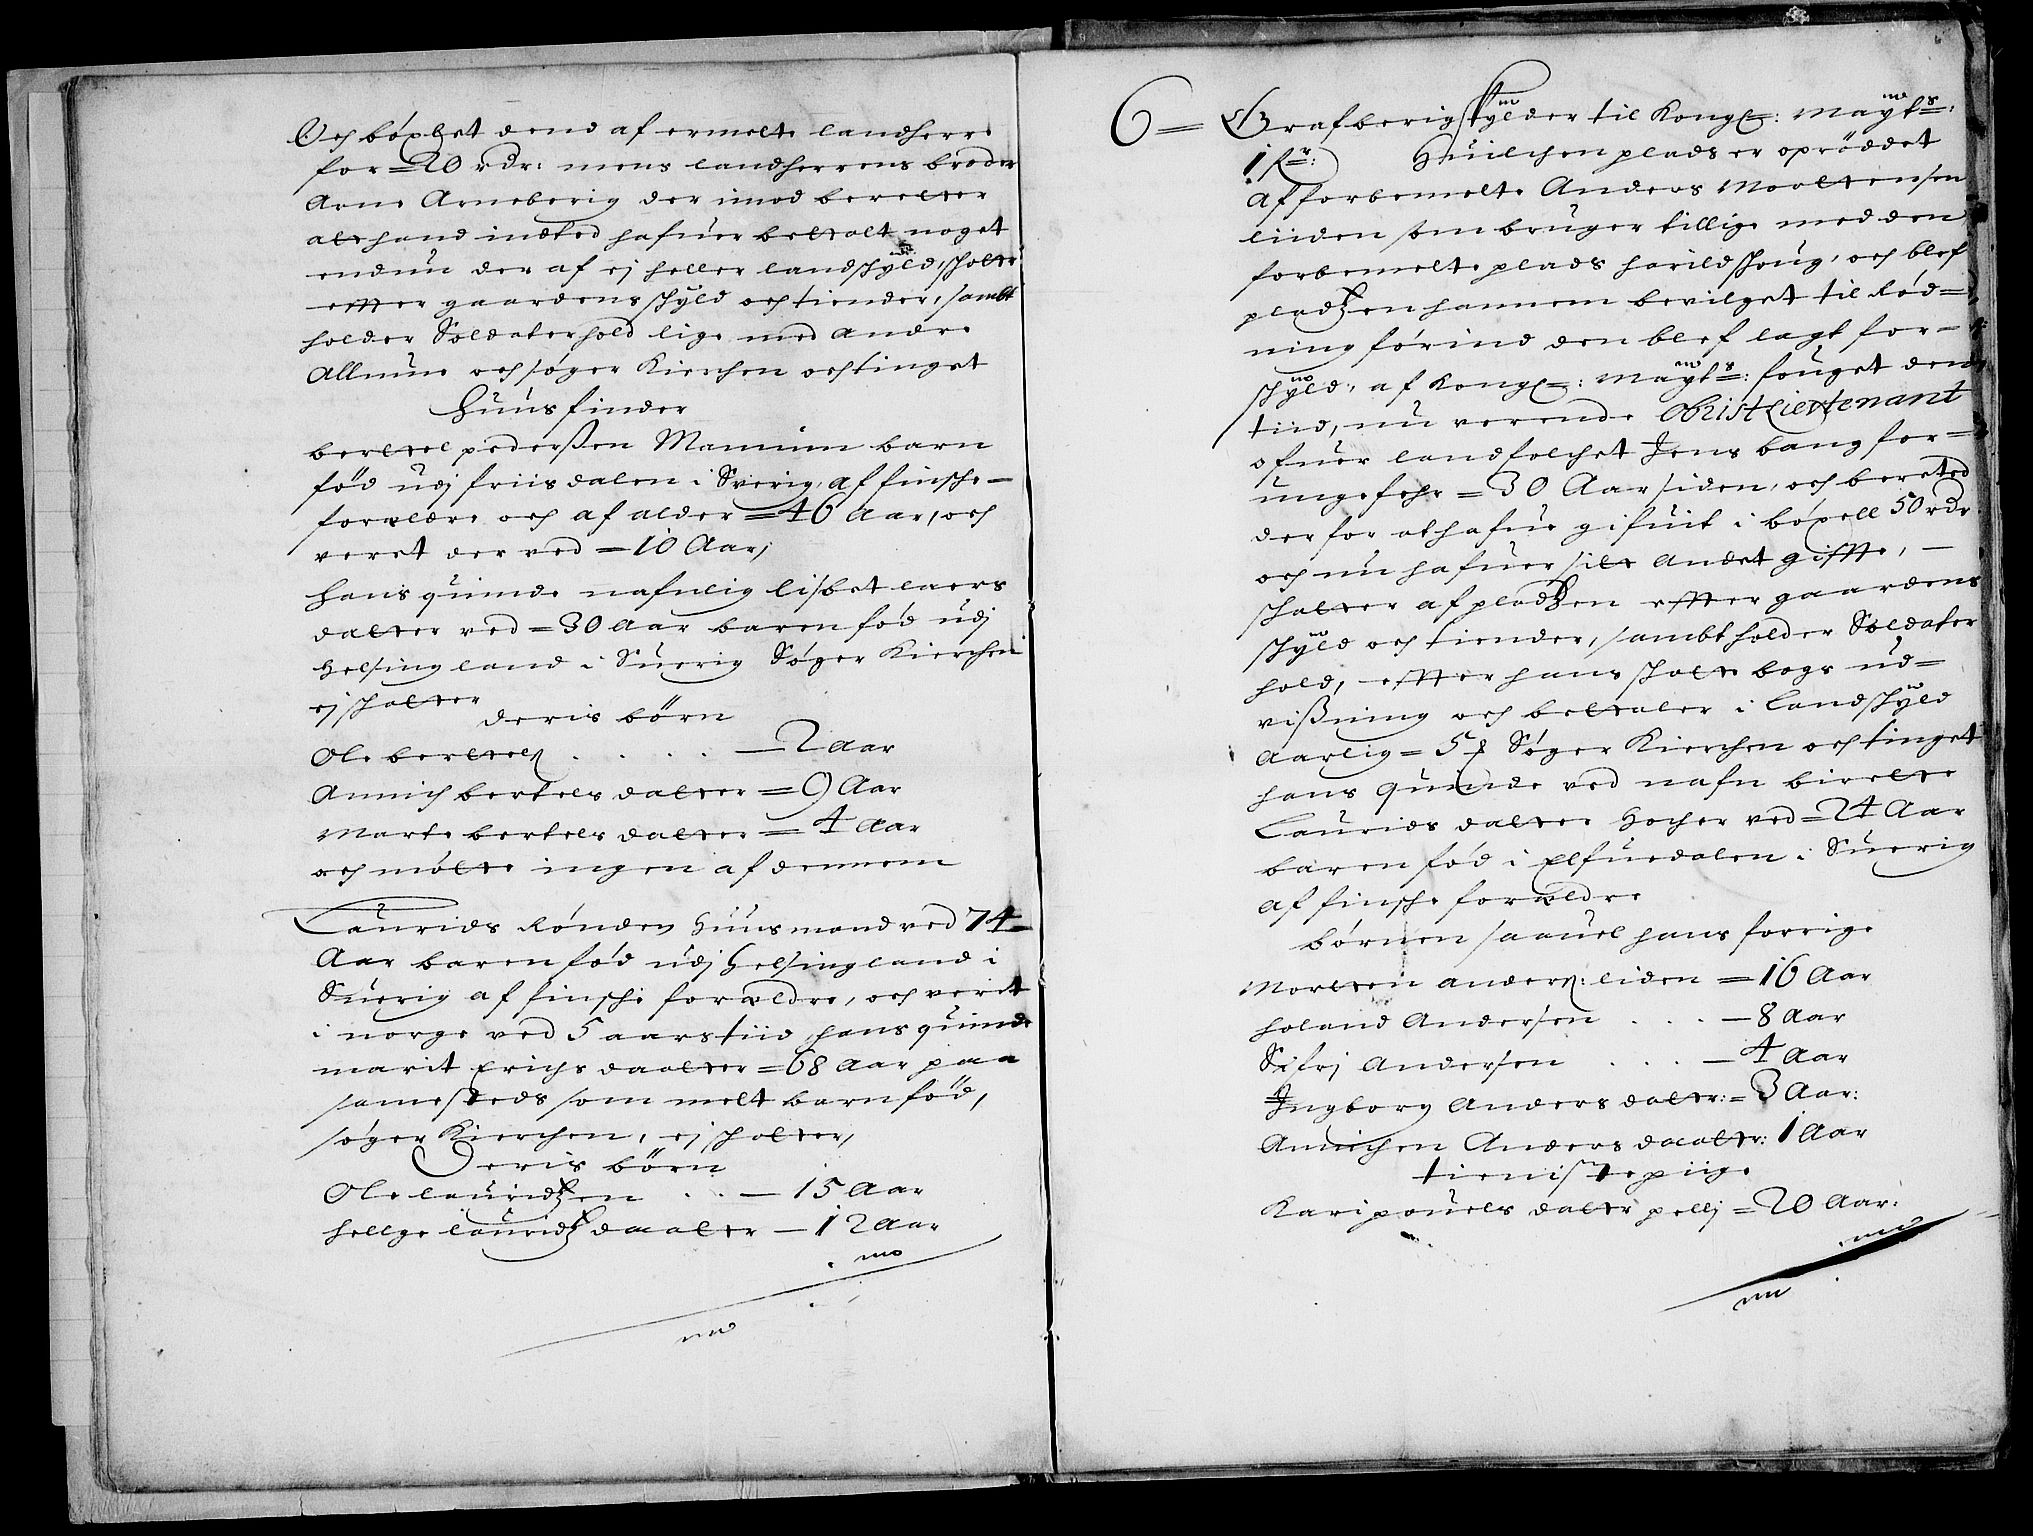 Och böxlet dend af ermelte landherre
for = 20 rdr: mens landherrens broder
Arne Arneberig der imod beretter
alt hand indted hafuer betalt noget
endnu der af ej heller landschyld, schatter
effter gaardens schyld och tiender, sambt
holder Soldaterhold lige med andre
Allmue och søger Kierchen och tinget
Huusfinder
bertel pederßen Mamuin barn
fød udj friisdalen i Sverig, af finsche
forældre och af alder = 46 Aar, och
veret der ved = 10 Aar,
hans quinde nafnlig lisbet laers
datter ved = 30 Aar baren fød udj
Helsingland i Suerig Søger Kierchen
ej schatter
deris børn
Ole bertels . . . . — 2 Aar
Annich bertels datter = 9 Aar
Marte bertels datter = 4 Aar
och møtte ingen af dennem
Laurids Rønden Huusmand ved 74
Aar baren fød udj Helsingland i
Suerig af finsche forældre, och verit
i norge ved 5 aars tiid hans quinde
marit Erichs daatter = 68 Aar paa
samesteds som melt barn fød,
søger Kierchen, ej schatter,
Deris børn
Ole lauridzen . . — 15 Aar
hellge lauridz daatter — 12 Aar
6 = Grafberig schylder til Kongl: Mayts:
1 fr: Huilchen plads er oprøddet
af forbemelte Anders Mortensen
liiden som bruger tillige med den
forbemelte plads harildschoug, och blef
pladzen hannem bevilget til Rød=
ning førind den blef lagt for
schyld, af Kongl: Mayts: fouget dend
tiid, nu verende Obristlieutenant
ofuer landfolchet Jens bang for
ungefehr = 30 Aar siden, och beretted
derfor at hafue gifuit i böxell 50 rdr
och nu hafuer ilt Andet giffte,
schatter af pladzen effter gaardens
schyld och tiender, sambt holder Soldater
hold, effter hans schatte bogs ud=
vißning och betaler i Landschyld
Aarlig = 5 ß Søger Kierchen och tinget
hans quinde ved nafn biritte
Laurids datter Hocher ved = 24 Aar
baren fød i Elfuedalen i Suerig
af finsche forældre
børnen saauel hans forrige
Morten anders: liden = 16 Aar
holand Andersen . . . — 8 Aar
Sifrj Andersen . . . — 4 Aar
Ingborg Anders datter: = 3 Aar:
Annichen Anders daatter: 1 Aar
tieniste piige
Kari pouels datter pellj = 20 Aar: